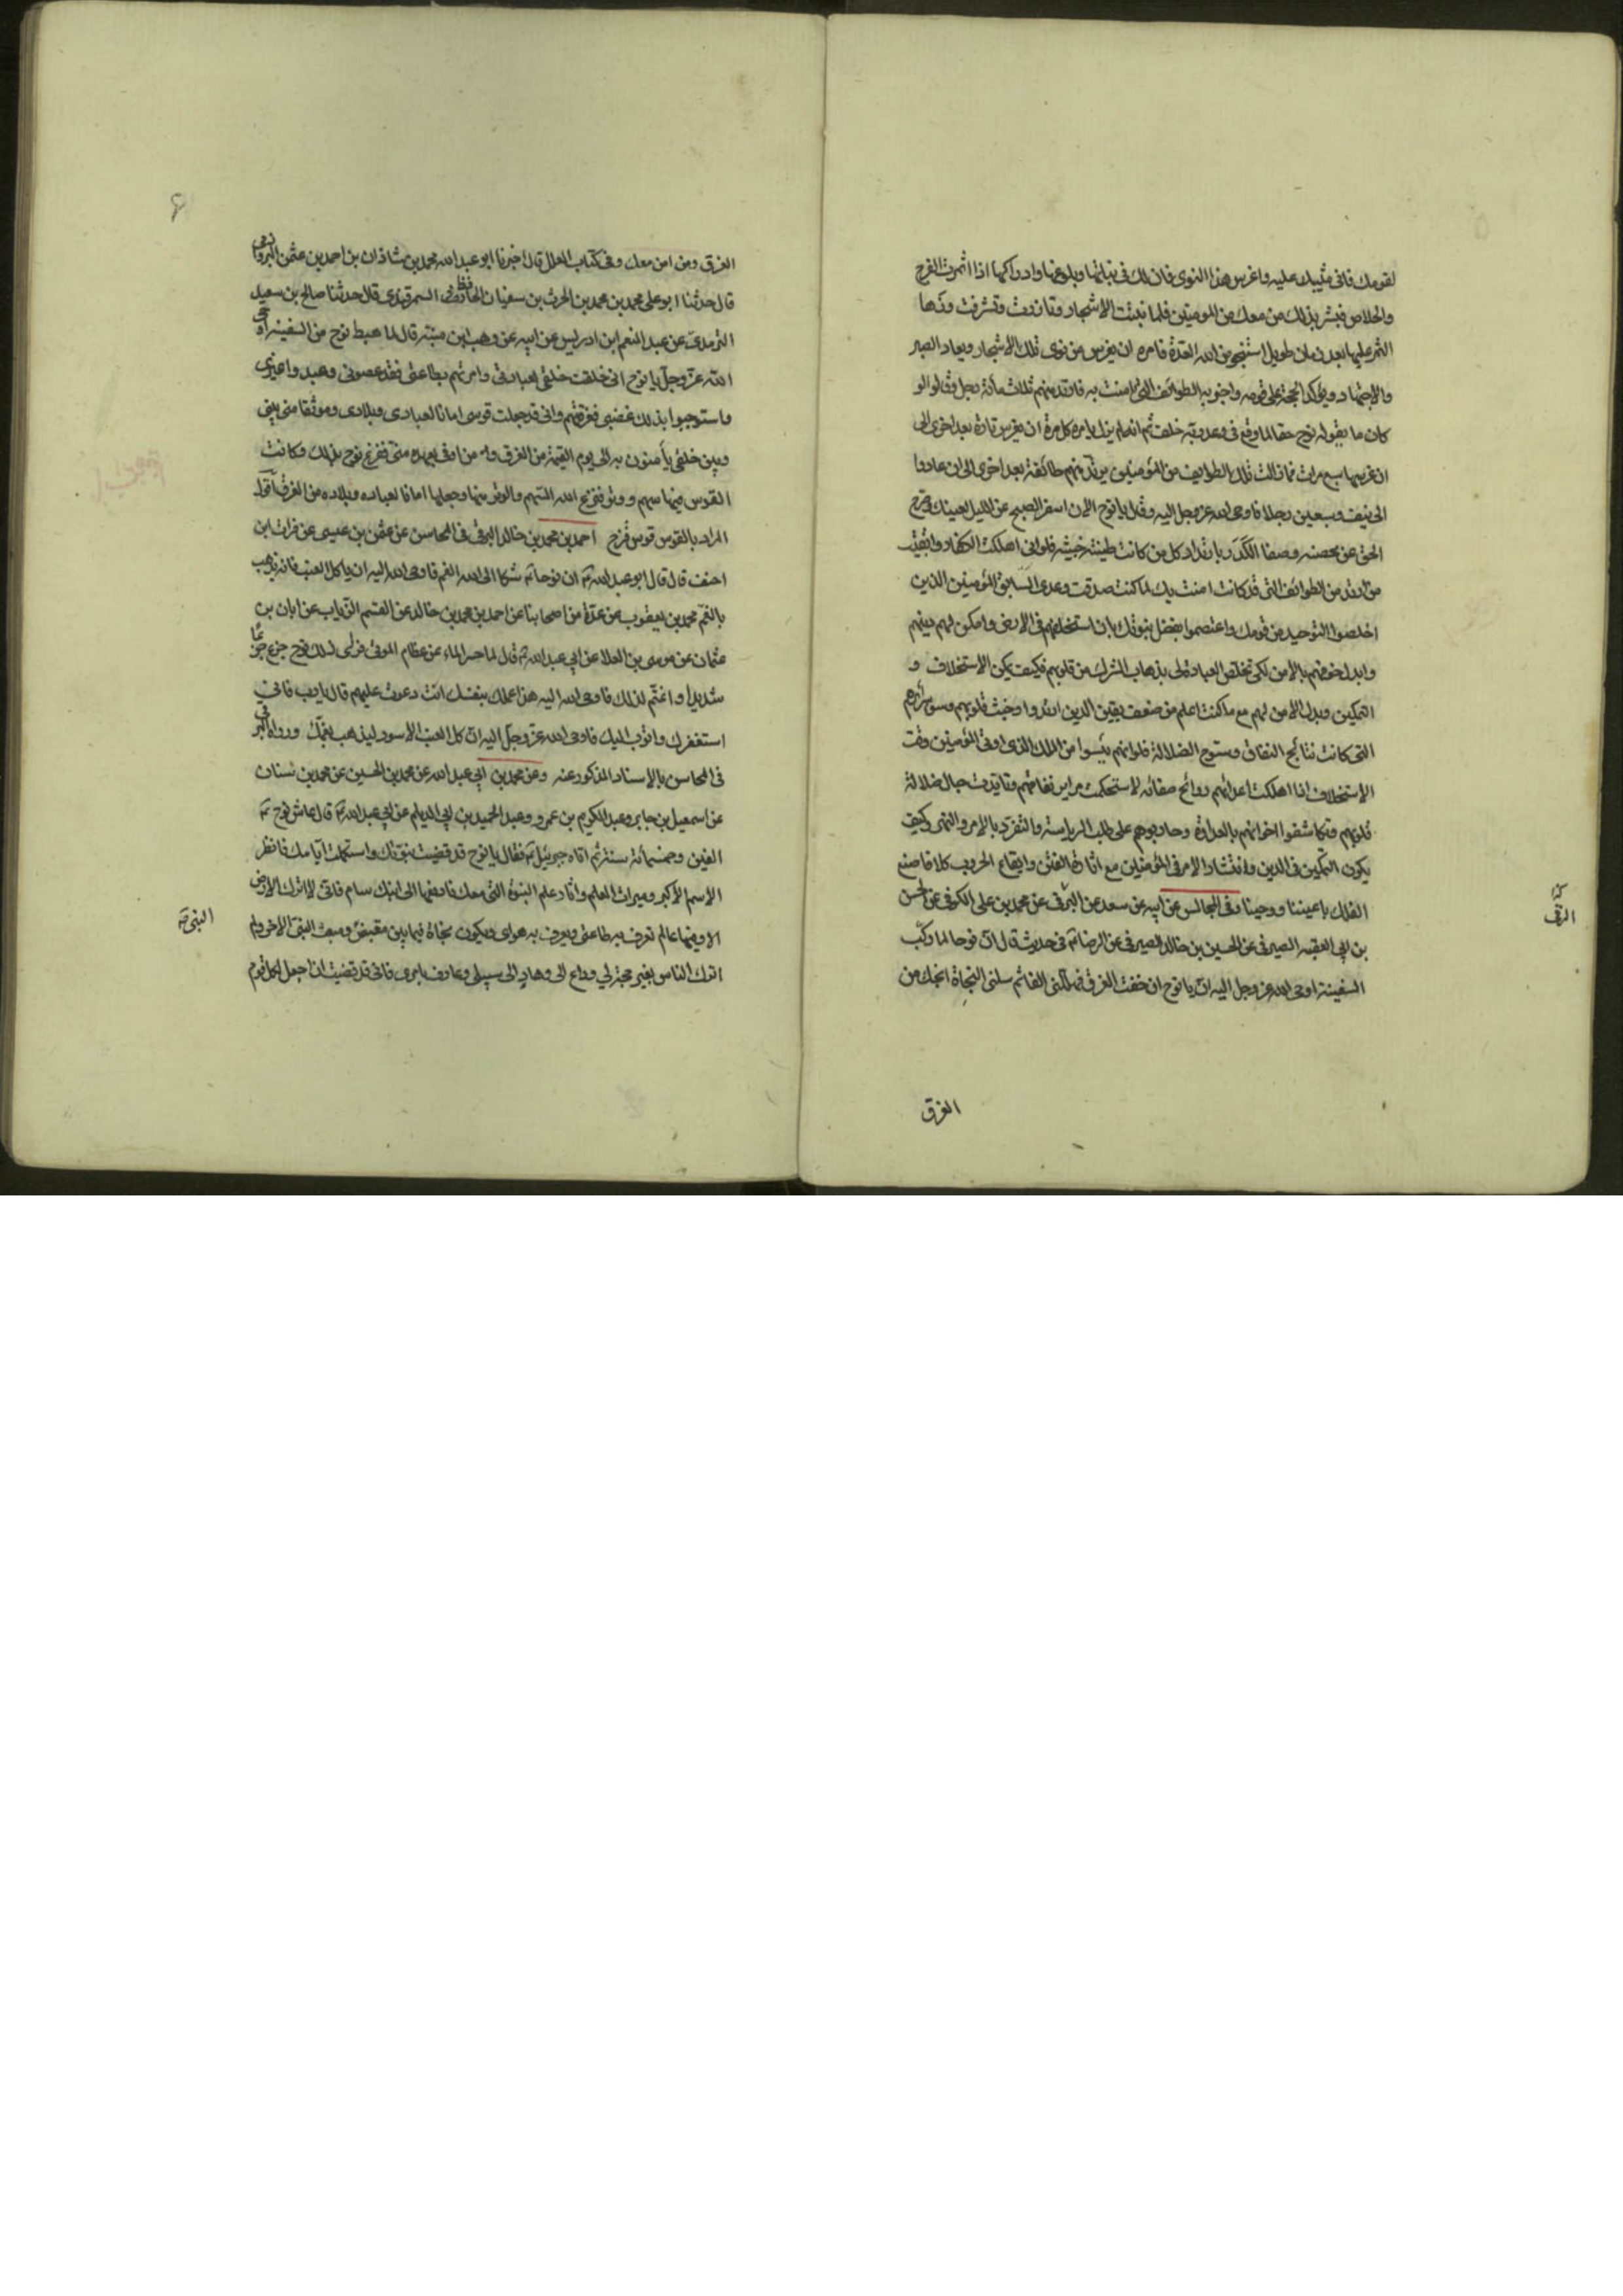 لقومك فانى مثيبك عليه واغرس هذا النوى فان لك فى نباتها وبلوغها وادراكها اذا اثمرت الفرج
والخلاص فبشر بذلك من معك من المومنين فلما نبتت الاشجار وتازرت وتشرفت وزها
الثمر عليها بعد زمان طويل استنجز من الله العدة فامره ان يغرس من نوى تلك الاشجار ويعاد الصبر
والاجتهاد ويؤكد الحجة على قومه واخبر به الطوائف التى امنت به فارتد منهم ثلث مائة رجل وقالوا لو
كان ما يقوله نوح حقا لما وقع فى وعد ربه خلف ثم انه لم يزل يامره كل مرة ان يغرس تارة بعد اخرى الى
ان غرسها سبع مرات فما زالت تلك الطوايف من المؤمنين يرتد منهم طائفة بعد اخرى الى ان عادوا
الى نيف وسبعين رجلا فاوحى الله عز وجل اليه وقال يا نوح الان اسفر الصبح عن الليل لعينك وصرح
الحق عن محضه وصفا الكدر بارتداد كل من كانت طينته خبيثه فلو انى اهلكت الكفار وابقيت
من ارتد من الطوائف التى قد كانت امنت بك لما كنت صدقت وعدى السابق للمؤمنين الذين
اخلصوا التوحيد من قومك واعتصموا بفضل نبوتك بان استخلفهم فى الارض وامكن لهم دينهم
وابدل خوفهم بالامن لكى تخلص العبادة لى بذهاب الشرك من قلوبهم فكيف يكون الاستخلاف و
التمكين وبدل الامن لهم مع ما كنت اعلم من ضعف يقين الذين ارتدوا وخبث قلوبهم وسوء سرائرهم
التى كانت نتائج النفاق وسنوح الضلالة فلو انهم من الملك الذى اوتى المؤمنين وقت
الاستخلاف اذا اهلكت اعدائهم روائح صفاته لاستحكمت مراير نفاقهم وتايدت حبال ضلالة
قلوبهم وتكاشفوا اخوانهم بالعداوة وحاربوهم على طلب الرياسة والتفرد بالامر والنهى وكيف
يكون التمكين فى الدين وانتشار الامر فى المؤمنين مع اثارة الفتن وايقاع الحروب كلا فاصنع
الفلك باعيننا ووحينا وفى المجالس عن ابيه عن سعد عن البرقى عن محمد بن على الكوفى عن الحسن
بن ابى العقبه الصيرفى عن الحسين بن خالد الصيرفى عن الرضا ع فى حديث قال ان نوحا لما ركب
السفينة اوحى الله عز وجل اليه ان يا نوح ان خفت الغرق فهللنى الفا ثم سلنى النجاة انجك من
الغرق
الغرق ومن امن معك وفى كتاب العلل قال اخبرنا ابو عبد الله محمد بن شاذان بن احمد بن عثمن البرواذى
قال حدثنا ابو على محمد بن محمد بن الحرث بن سفيان الحافظ السمرقندى قال حدثنا صالح بن سعيد
الترمدى عن عبد المنعم ابن ادريس عن ابيه عن وهب ابن منبه قال لما هبط نوح من السفينة اوحى
الله عز وجل يا نوح انى خلقت خلقى لعبادتى وامرتهم بطاعتى فقد عصونى وعبدوا غيرى
واستوجبوا بذلك غضبى فغرقتهم وانى قد جعلت قوسى امانا لعبادى وبلادى وموثقا منى بينى
وبين خلقى يأمنون به الى يوم القيمة من الغرق ومن اوفى بعهده منى ففرح نوح بذلك وكانت
القوس فيها سهم ووتر فنزع الله السهم والوتر منها وجعلها امانا لعباده وبلاده من الغرق اقول
المراد بالقوس قوس قزح احمد بن محمد بن خالد البرقى فى المحاسن عن عثمن بن عيسى عن فرات ابن
احنف قال قال ابو عبد الله ع ان نوحا ع شكا الى الله الغم فاوحى الله اليه ان ياكل العنب فانه يذهب
بالغم محمد بن يعقوب عن عدة من اصحابنا عن احمد بن محمد بن خالد عن القسم الزيات عن ابان بن
عثمان عن موسى بن العلا عن ابى عبد الله ع قال لما حسر الماء عن عظام الموتى فراى ذلك نوح جزع جزعا
شديدا واغتم لذلك فاوحى الله اليه هذا عملك بنفسك انت دعوت عليهم قال يا رب فانى
استغفرك واتوب اليك فاوحى الله عز وجل اليه ان كل العنب الاسود ليذهب بغمك ورواه البرقى
فى المحاسن بالاسناد المذكور عنه وعن محمد بن ابى عبد الله عن محمد بن الحسين عن محمد بن سنان
عن اسمعيل بن جابر وعبد الكريم بن عمرو وعبد الحميد بن ابى الديلم عن ابى عبد الله ع قال عاش نوح ع
الفين وخمسمائة سنة ثم اتاه جبرئيل ع فقال يا نوح قد قضيت نبوتك واستكملت ايامك فانظر
الاسم الاكبر وميراث العلم واثار علم النبوة التى معك فادفعها الى ابنك سام فانى لا اترك الارض
الا وفيها عالم تعرف به طاعتى ويعرف به هواى ويكون نجاة فيما بين مقبض ومبعث النبى الاخر ولم
اترك الناس بغير حجة لى وداع الى وهاد الى سبيلى وعارف بامرى فانى قد قضيت ان اجعل لكل قوم
النبى